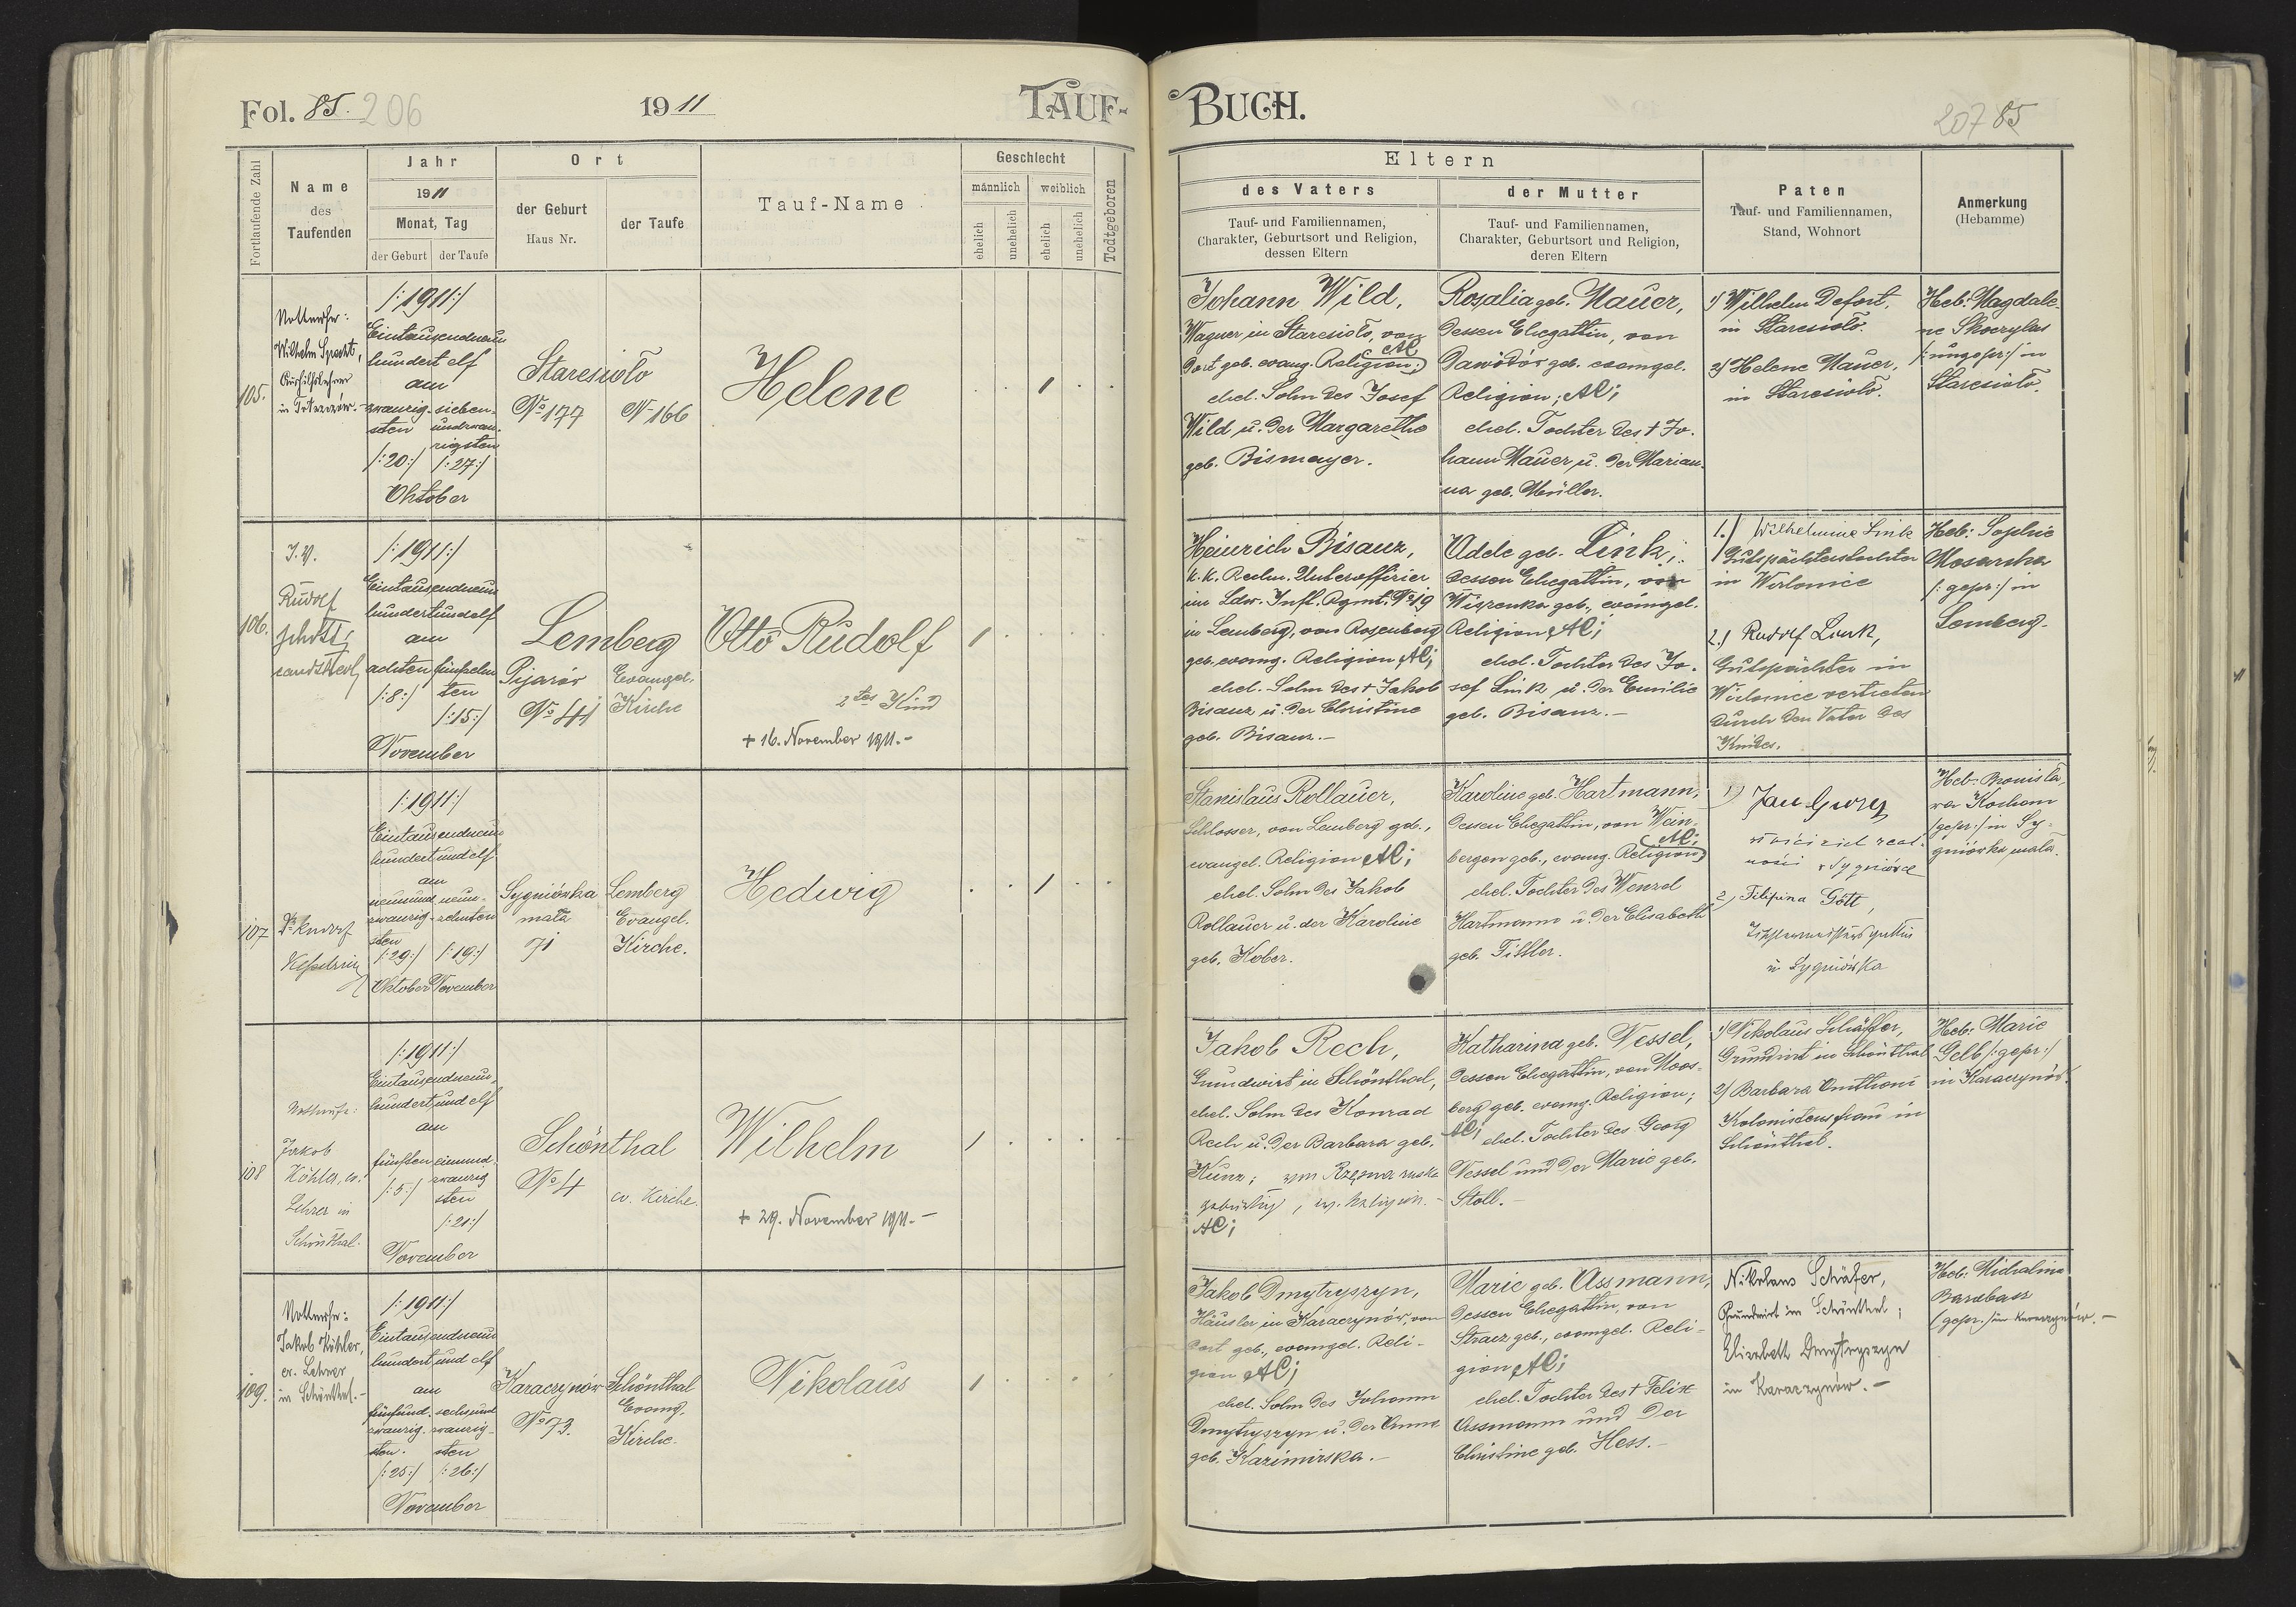 Fol. 85. 206
1911
TAUF-
Fortlaufende Zahl
Name
des
Taufenden
Jahr
1911
Monat, Tag
der Geburt
der Taufe
Ort
der Geburt
Haus Nr.
der Taufe
Tauf-Name
Geschlecht
männlich
weiblich
ehelich
unehelich
ehelich
unehelich
Todtgeboren
105.
Nottaufe:
Wilhelm Specht,
Aushilfslehrer
in
/:1911:/
Eintausendneun
hundert elf
am
zwanzig-
sten
/:20:/
sieben-
undzwan-
zigsten
/:27:/
Oktober
Staresioło
No 177
No 166
Helene
1
106.
I.V.
Rudolf
/:1911:/
Eintausendneun
hundertundelf
am
achten
/:8:/
fünfzehn
ten
/:15:/
November
Lemberg
Pijarów
No 41
Evangel.
Kirche
Otto Rudolf
2tes Kind
+ 16. November 1911.-
1
107
/:1911:/
Eintausendneun
hundertundelf
am
neunund
zwanzig-
sten
/:29:/
Oktober
neun-
zehnten
/:19:/
November
Sygniówka
mała
71
Lemberg
Evangel.
Kirche.
Hedwig
1
108
Nottaufe:
Jakob
Köhler, ev.
Lehrer in
Schönthal.
/:1911:/
Eintausendneun-
hundert und elf
am
fünften
/:5:/
einund-
zwanzig
sten
/:21:/
November
Schönthal
No 4
ev. Kirche.
Wilhelm
+ 29. November 1911.-
1
109.
Nottaufe:
Jakob Köhler,
ev. Lehrer
in Schönthal.-
/:1911:/
Eintausendneun
hundert und elf
am
fünfund-
zwanzig-
sten.
/:25:/
sechsund
zwanzig-
sten
/:26:/
November
Karaczynów
No 73.
Schönthal
Evang.
Kirche.
Nikolaus
1
BUCH.
207 85
Eltern
des Vaters
Tauf- und Familiennamen,
Charakter, Geburtsort und Religion,
dessen Eltern
der Mutter
Tauf- und Familiennamen,
Charakter, Geburtsort und Religion,
deren Eltern
Paten
Tauf- und Familiennamen,
Stand, Wohnort
Anmerkung
(Hebamme)
Johann Wild,
Wagner in Staresioło, von
dort geb. evang. Religion; AC
ehel. Sohn des Josef
Wild u. der Margarethe
geb. Bismayer.
Rosalia geb. Mauer,
dessen Ehegattin, von
Dawidów geb. evangel.
Religion; AC;
ehel. Tochter des + Jo-
hann Mauer u. der Marian-
na geb. Müller.
1) Wilhelm Defort,
in Staresioło.
2) Helene Mauer,
in Staresioło.
Heb: Magdale-
ne Skoczylas
/:ungepr:/ in
Staresioło.
Heinrich Bisanz,
k.k. Rechn. Unteroffizier
im Ldw. Inft. Rgmt. No 19
in Lemberg, von Rosenberg
geb., evang. Religion AC;
ehel. Sohn des + Jakob
Bisanz u. der Christine
geb. Bisanz.-
Adele geb. Link;
dessen Ehegattin, von
Wiszenka geb., evangel.
Religion AC;
ehel. Tochter des Jo-
sef Link u. der Emilie
geb. Bisanz.-
1.) Wilhelmine Link
Gutspächterstochter
in
2.) Rudolf Link,
Gutspächter in
vertreten
durch den Vater des
Kindes.
Heb: Sophie
Mosarska
/:gepr:/ in
Lemberg.
Stanislaus Rollauer,
Schlosser, von Lemberg geb.,
evangel. Religion AC;
ehel. Sohn des Jakob
Rollauer u. der Karoline
geb. Kober.
Karoline geb. Hartmann,
dessen Ehegattin, von Wein-
bergen geb., evang. Religion AC;
ehel. Tochter des Wenzel
Hartmann u. der Elisabeth
geb. Fissler.
1)
Jan
właściciel real-
ności
2) Filipina Gött,
in Sygniówka
Heb: Bronisła-
wa Kocham
/gepr:/ in Sy-
gniówka mała.
Jakob Rech,
Grundwirt in Schönthal,
ehel. Sohn des Konrad
Rech u. der Barbara geb.
Kunz; von Rzęsna ruska
gebürtig, ev. Religion.-
AC;
Katharina geb. Nessel,
dessen Ehegattin, von Moos-
berg geb. evang. Religion;
AC; ehel. Tochter des Georg
Nessel und der Marie geb.
Stoll.-
1) Nikolaus Schäffer,
Grundwirt in Schönthal
2) Barbara
Kolonistensfrau in
Schönthal.
Heb: Marie
Gelb /:gepr:/
in Karaczynów.
Jakob Dmytryszyn,
Häusler in Karaczynów, von
dort geb., evangel. Reli-
gion AC;
ehel. Sohn des Johann
Dmytryszyn u. der Anna
geb. Kazimirska.-
Marie geb. Assmann,
dessen Ehegattin, von
Stracz geb., evangel. Reli-
gion AC;
ehel. Tochter des + Felix
Assmann und der
Christine geb. Hess.-
Nikolaus Schäfer,
Grundwirt in Schönthal;
Elisabeth Dmytryszyn
in Karaczynów.-
Heb: Michalina
Barabasz
(gepr.) in Karaczynów.-